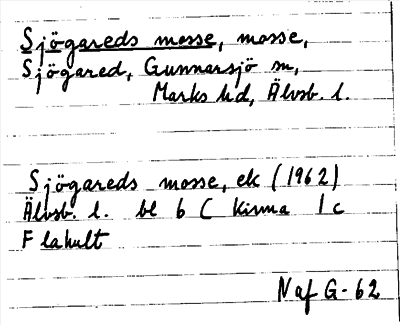 Sjögareds mosse, mosse,
Sjögared, Gunnarsjö sn,
Marks hd, Älvsb. l.
Sjögareds mosse, ek (1962)
Älvsb. l. bl 6 C Kinna 1 c
Flahult
Naf G-62